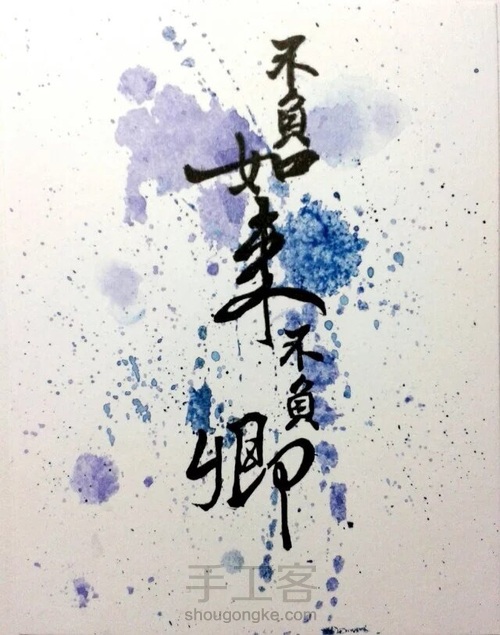 不负
如来
不负
卿
手工客
shougongke.com